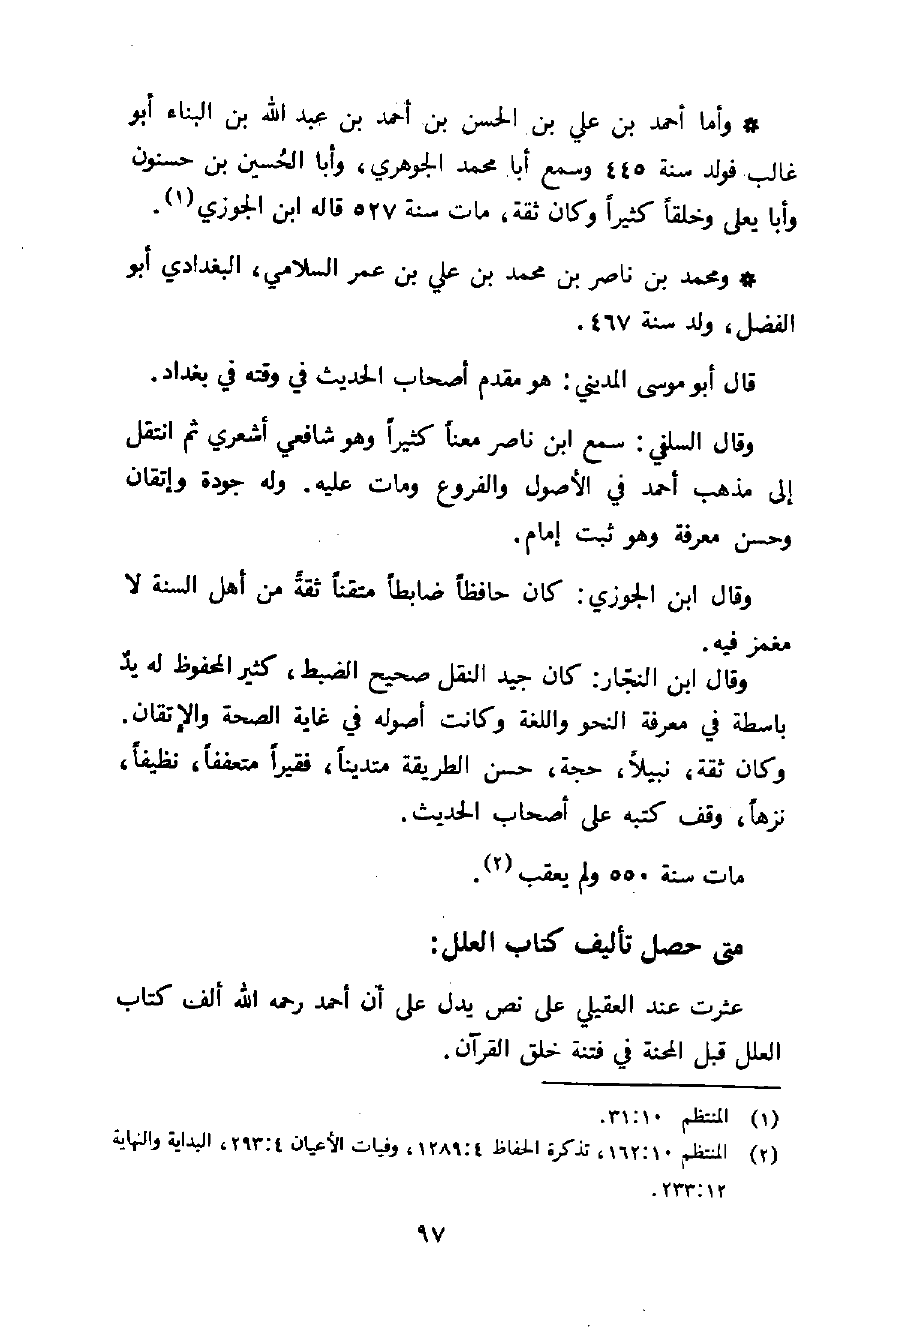 * وأما أحمد بن علي بن الحسن بن أحمد بن عبد الله بن البناء أبو
غالب فولد سنة ٤٤٥ وسمع أبا محمد الجوهري، وأبا الحُسين بن حسنون
وأبا يعلى وخلقاً كثيراً وكان ثقة، مات سنة ٥٢٧ قاله ابن الجوزي (١).
* ومحمد بن ناصر بن محمد بن علي بن عمر السلامي، البغدادي أبو
الفضل، ولد سنة ٤٦٧.
قال أبو موسى المديني: هو مقدم أصحاب الحديث في وقته في بغداد.
وقال السلفي: سمع ابن ناصر معناً كثيراً وهو شافعي أشعري ثم انتقل
إلى مذهب أحمد في الأصول والفروع ومات عليه. وله جودة وإتقان
وحسن معرفة وهو ثبت إمام.
وقال ابن الجوزي: كان حافظاً ضابطاً متقناً ثقةً من أهل السنة لا
مغمز فيه.
وقال ابن النجّار: كان جيد النقل صحيح الضبط، كثير المحفوظ له يدٌ
باسطة في معرفة النحو واللغة وكانت أصوله في غاية الصحة والإتقان.
وكان ثقة، نبيلاً، حجة، حسن الطريقة متديناً، فقيراً متعففاً، نظيفاً،
نزهاً، وقف كتبه على أصحاب الحديث.
مات سنة ٥٥٠ ولم يعقب (٢).
متى حصل تأليف كتاب العلل:
عثرت عند العقيلي على نص يدل على أن أحمد رحمه الله ألف كتاب
العلل قبل المحنة في فتنة خلق القرآن.
(١) المنتظم ١٠:‏٣١.
(٢) المنتظم ١٠:‏١٦٢، تذكرة الحفاظ ٤:‏١٢٨٩، وفيات الأعيان ٤:‏٢٩٣، البداية والنهاية
١٢:‏٢٣٣.
٩٧